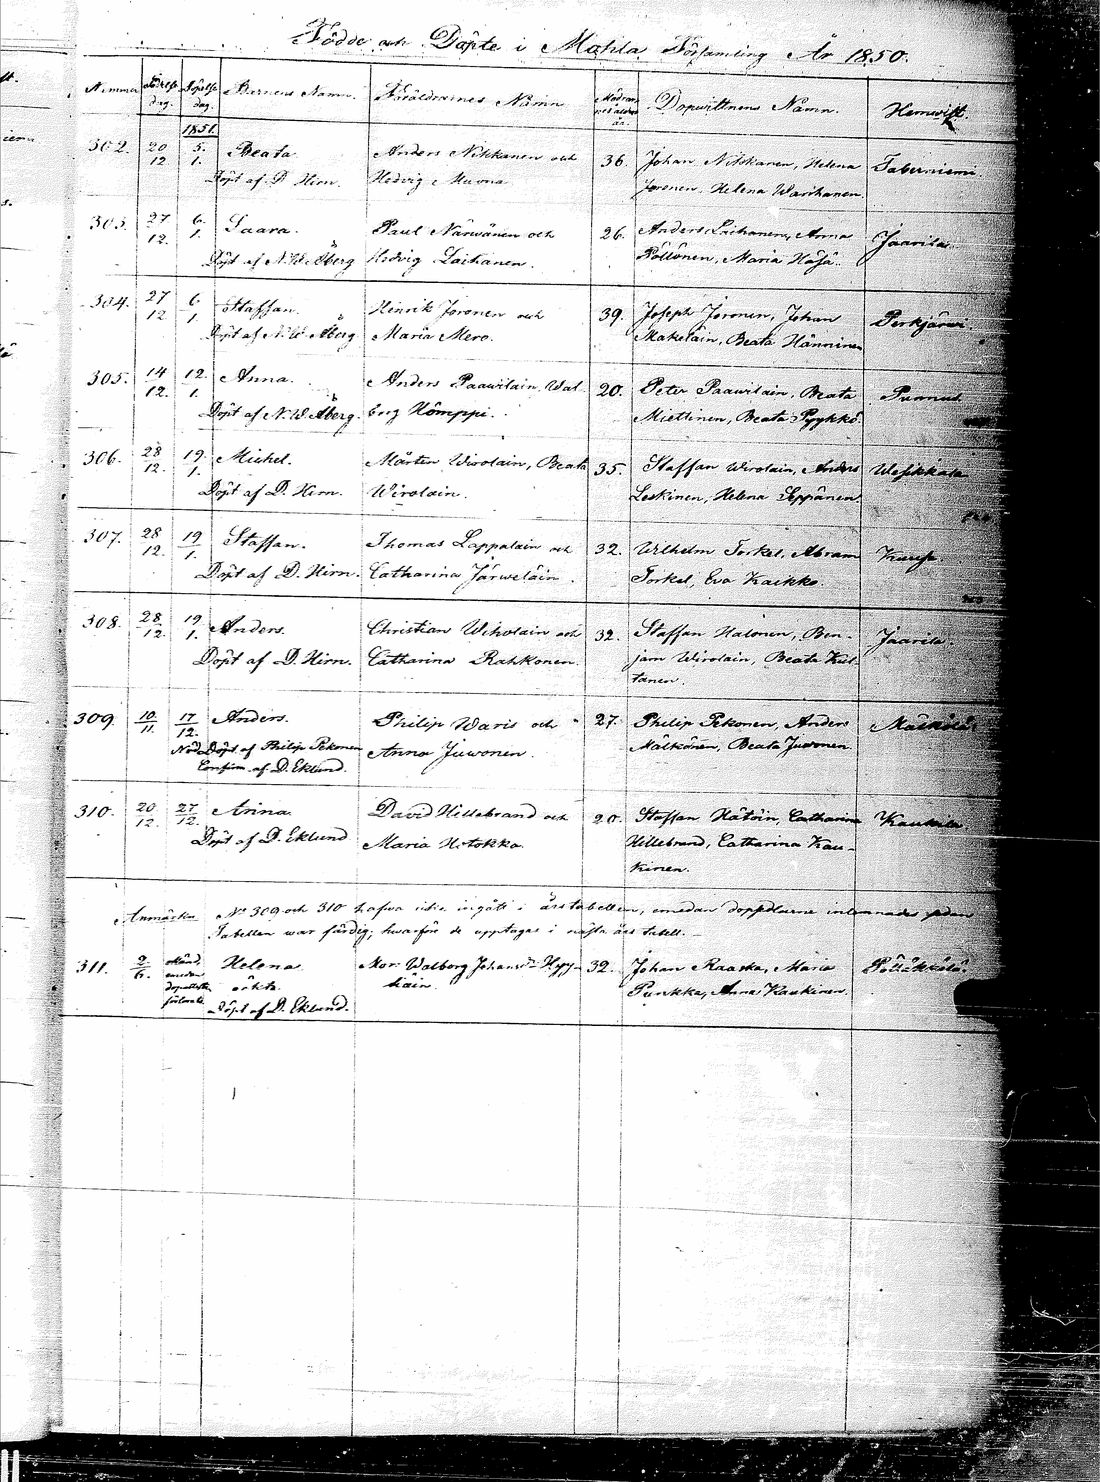 Födde och Döpte i Mohla Församling År 1850.
Nummer Födelse dag. Döpelse dag. Barnens Namn. Föräldrarnes Namn Modrens ålder år. Dopwittnens Namn. Hemwist.
1851.
302. 20/12 5/1. Beata. Anders Nikkanen och 36. Johan Nikkanen, Helena Taberniemi.
Döpt af D. Hirn. Hedvig Muona Joronen. Helena Warikanen.
303. 27/12. 6/1. Saara. Paul Närwänen och 26. Anders Laihanen, Anna Jaarila.
Döpt af N. W. Åberg Hedvig Laihanen. Pöllönen, Maria
304. 27/12 6/1. Staffan. Henrik Joronen och 39. Joseph Joronen, Johan Perkjärwi.
Döpt af N. W. Åberg Maria Mero. Makeläin, Beata Hänninen
305. 14/12. 12/1. Anna. Anders Paawilain, Wal 20. Peter Paawilain, Beata Punnus
Döpt af N. W. Åberg. borg Hömppi. Miettinen, Beata Pyykkö.
306. 28/12. 19/1. Michel. Mårten Wirolain, Beata 35. Staffan Wirolain, Anders Wesikkala
Döpt af D. Hirn. Wirolain. Leskinen, Helena Seppänen
307. 28/12. 19/1. Staffan. Thomas Lappalain och 32. Wilhelm Torkel, Abram
Döpt af D. Hirn. Catharina Järweläin. Torkel, Eva Kaikko
308. 28/12. 19/1. Anders. Christian Wirolain och 32. Staffan Halonen, Ben- Jaarila
Döpt af D. Hirn. Catharina Rahkonen. jam Wirolain, Beata Kul-
tanen.
309. 10/11. 17/12. Anders. Philip Waris och 27. Philip Pekonen, Anders Mälkölä
Nöd Döpt af Philip Pekonen Anna Juwonen. Mälkönen, Beata Juwonen
Confirm. af D. Eklund.
310. 20/12. 27/12. Anna. David Hillebrand och 20. Staffan Hätöin, Catharina Kaukila
Döpt af D. Eklund Maria Hotokka. Hillebrand, Catharina Kau-
kinen.
Anmärkn No 309 och 310 hafwa icke ingått i årstabellen, emedan inlemnades sedan
Tabellen war färdig; hwarföre de upptagas i nästa års tabell.
311. 2/6. okänd emedan förlorats. Helena Mor. Walborg Johansdr Hyy- 32. Johan Raaska, Maria
oäkta. Purkka, Anna Kaukinen.
Döpt af D. Eklund.